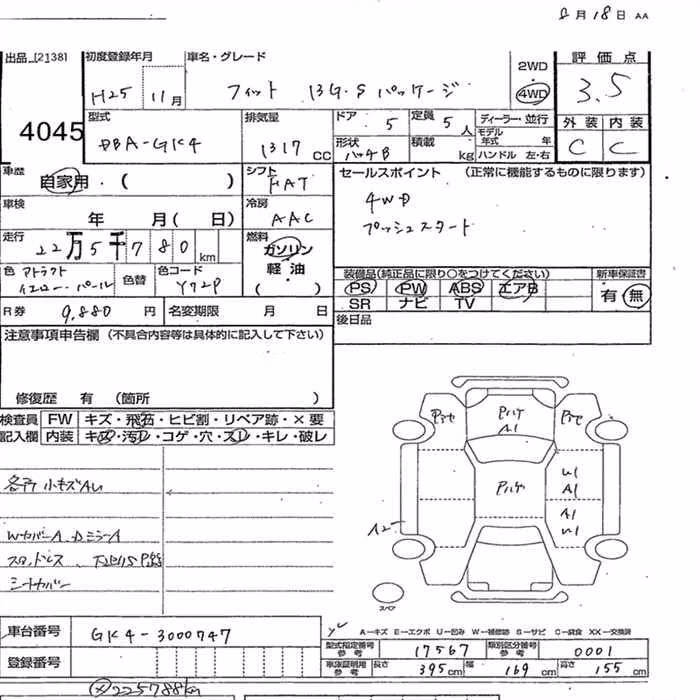 月18日 AA
出品 [2138] 初度登録年月 車名・グレード 2WD 評価点
H25 11月 フィット 13G・S パッケージ 4WD 3.5
4045 型式 排気量 ドア 5 定員 5人 ディーラー・並行 外装 内装
DBA-GK4 1317 CC 形状 ハッチB 積載 kg モデル年式 年 ハンドル 左・右 C C
車歴 自家用・( ) シフト FAT セールスポイント (正常に機能するものに限ります)
車検 年 月( 日) 冷房 AAC 4WD
プッシュスタート
走行 22万5千780 km 燃料 ガソリン 軽油 ( )
色 アトラクト イエロー・パール 色替 色コード Y72P 装備品(純正品に限り○をつけてください) 新車保証書
PS PW ABS エアB 有・無
SR ナビ TV
R券 9,880 円 名変期限 月 日 後日品
注意事項申告欄 (不具合内容等は具体的に記入して下さい)
修復歴 有 (箇所 )
検査員 FW キズ・飛石・ヒビ割・リペア跡・×要
記入欄 内装 キズ・汚レ・コゲ・穴・スレ・キレ・破レ
Pハゲ
A1
Pハゲ
U1
A1
A1
U1
A2
各所小キズAU
WカバーA DミラーA
シートカバー
スペア
A-キズ E-エクボ U-凹み W-補修跡 S-サビ C-腐食 XX-交換調
車台番号 GK4-3000747 型式指定番号 参考 17567 類別区分番号 参考 0001
登録番号 車庫証明用 参考 長さ 395cm 幅 169cm 高さ 155cm
225788km